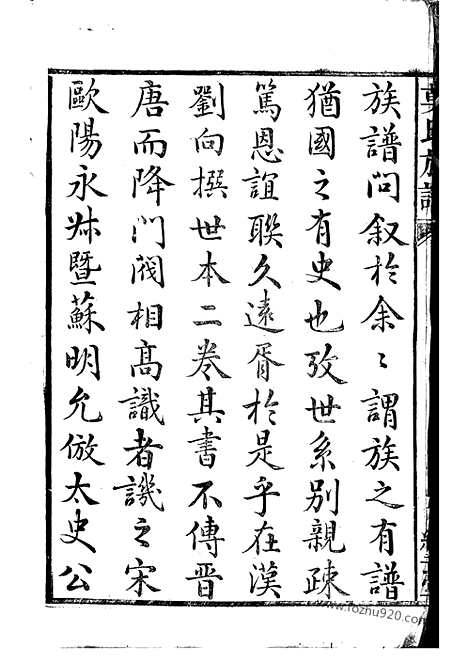 族譜問叙於余〻謂族之有譜
猶國之有史也攷世系別親疎
篤恩誼聯久遠胥於是乎在漢
劉向撰世本二卷其書不傳晋
唐而降門閥相高識者譏之宋
歐陽永叔暨蘇明允倣太史公
www.fozhu920.com